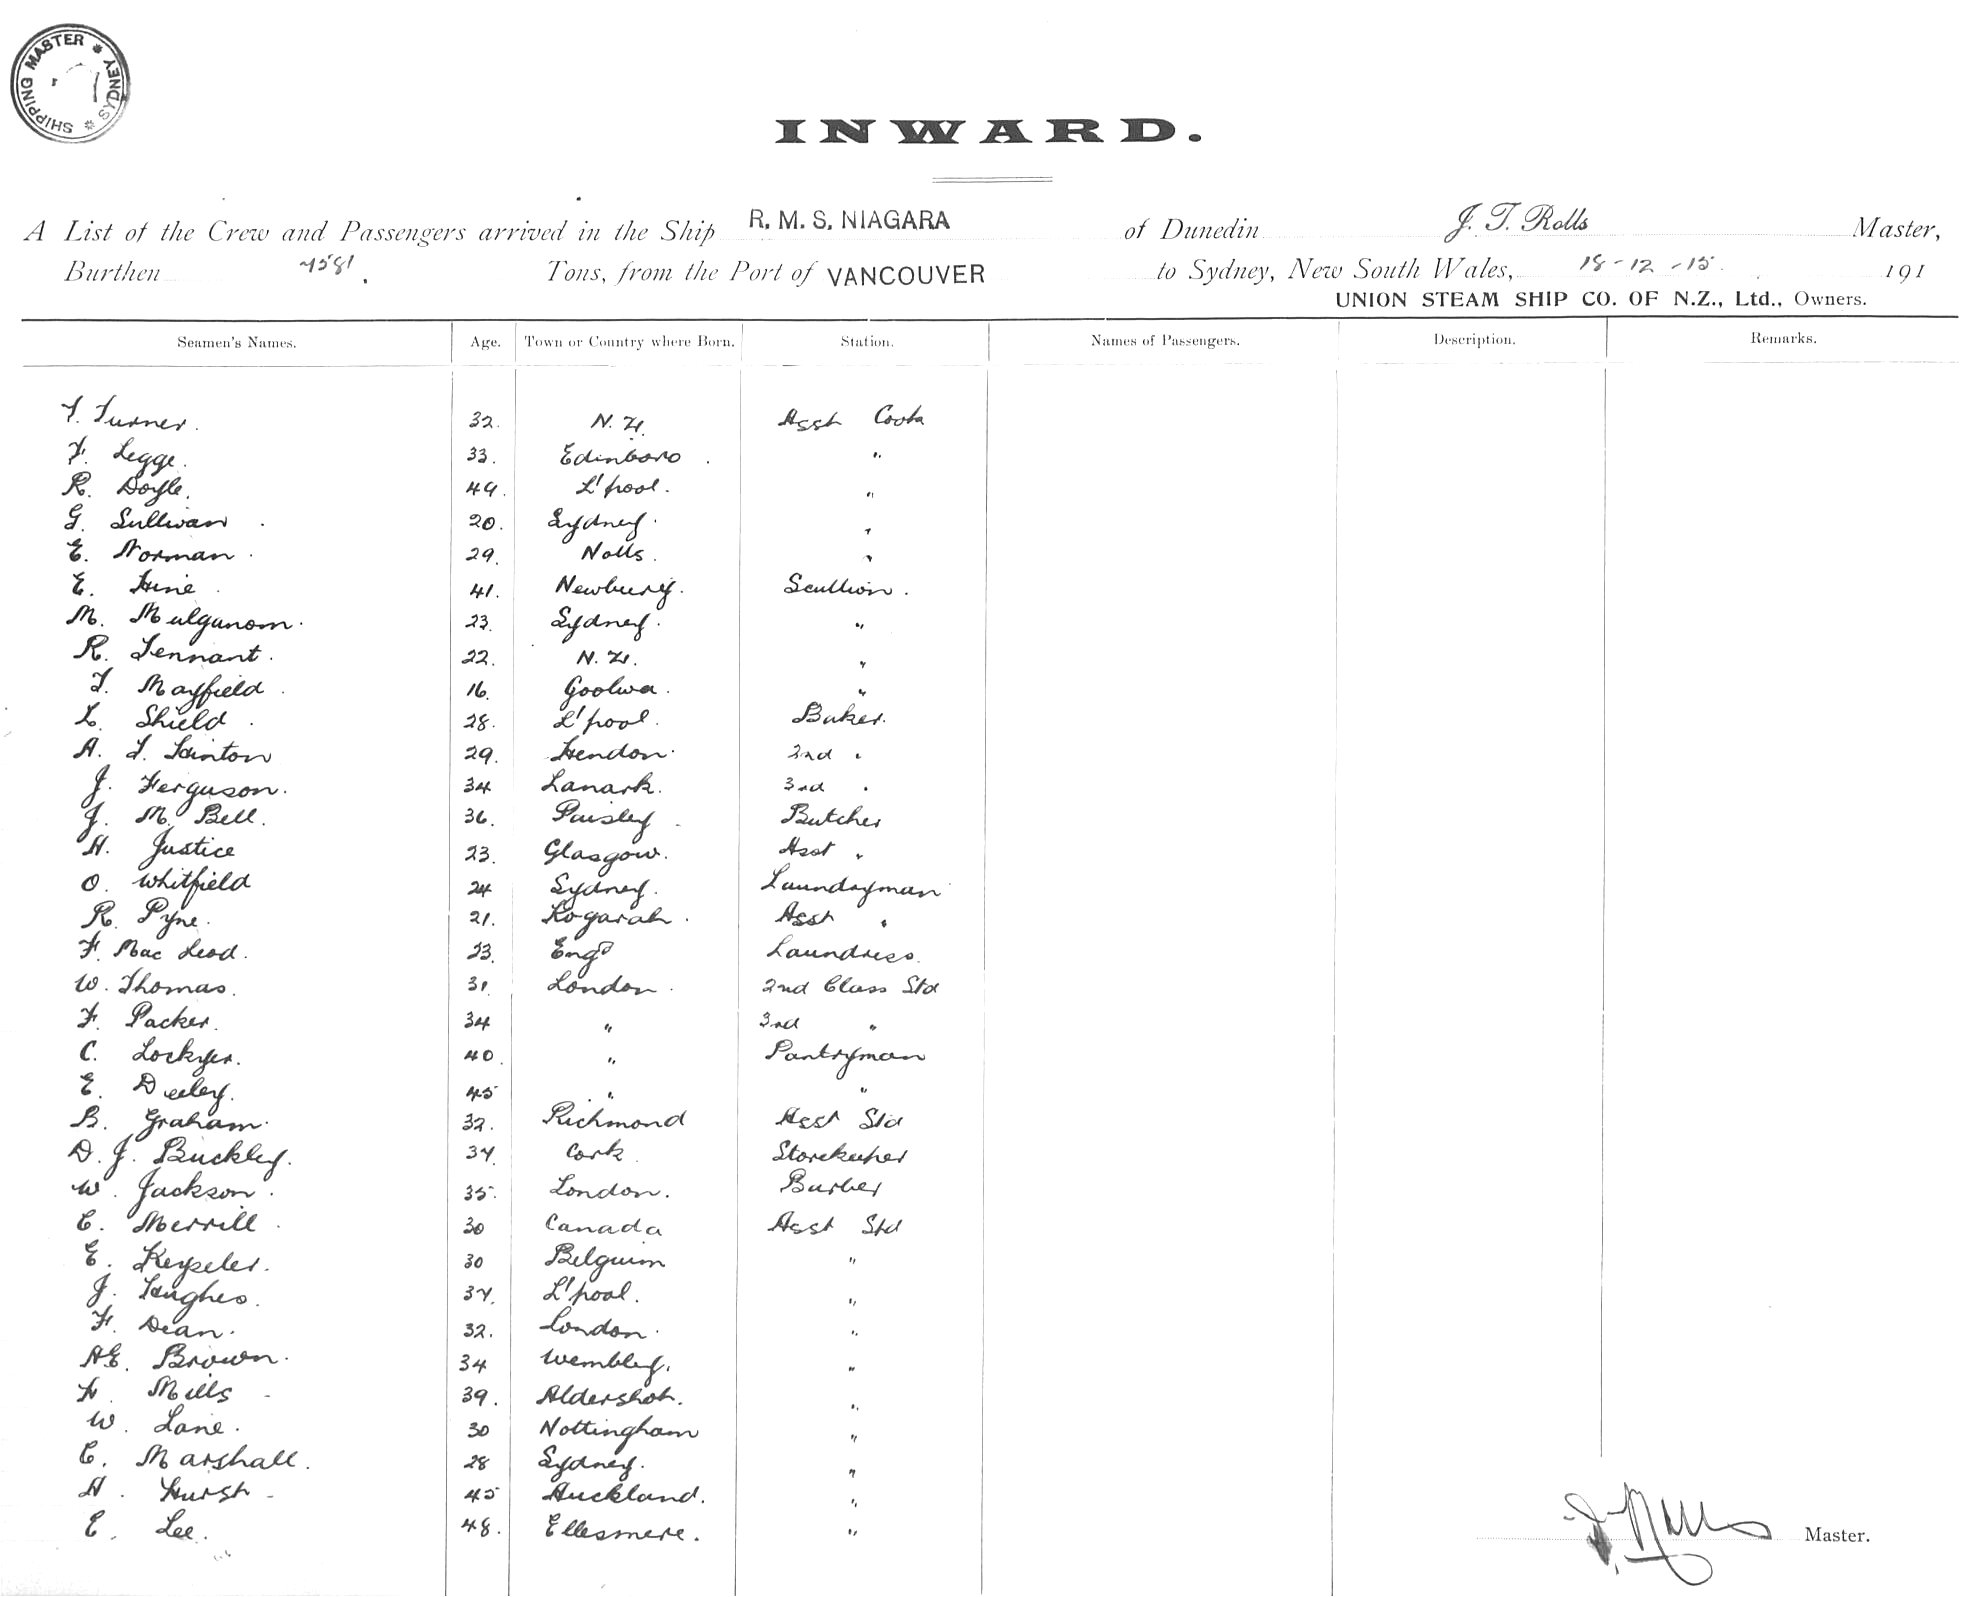 SHIPPING MASTER * SYDNEY *
INWARD.
A List of the Crew and Passengers arrived in the Ship R. M. S. NIAGARA of Dunedin J. T. Rolls Master,
Burthen 7581. Tons, from the Port of VANCOUVER to Sydney, New South Wales, 18-12-15 191
UNION STEAM SHIP CO. OF N.Z., Ltd., Owners.
Seamen's Names. Age. Town or Country where Born. Station. Names of Passengers. Description. Remarks.
T. Turner. 32. N. Z. Asst Cook
F. Legge. 33. Edinboro. "
R. Doyle. 49. L'pool. "
G. Sullivan. 20. Sydney. "
E. Norman. 29. Notts. "
E. Hine. 41. Newbury. Scullion.
M. Mulgunom. 23. Sydney. "
R. Tennant. 22. N. Z. "
T. Mayfield. 16. Goolwa. "
L. Shield. 28. L'pool. Baker.
A. T. Hinton 29. Hendon. 2nd "
J. Ferguson. 34 Lanark. 3rd "
J. M. Bell. 36. Paisley. Butcher
H. Justice 23. Glasgow. Asst "
O. Whitfield 24 Sydney. Laundryman
R. Pyne. 21. Kogarah. Asst "
F. Mac Leod. 23. Engd Laundress.
W. Thomas. 31 London. 2nd Class Std
F. Packer. 34 " 3rd "
C. Lockyer. 40. " Pantryman
E. Deeley. 45 " "
B. Graham. 32. Richmond Asst Std
D. J. Buckley. 37. Cork Storekeeper
W. Jackson. 35. London. Barber
C. Merrill. 30 Canada Asst Std
E. Keyseler. 30 Belguim "
J. Hughes. 37. L'pool. "
F. Dean. 32. London. "
AE. Brown. 34 Wembley. "
F. Mills 39. Aldershot. "
W. Lane. 30 Nottingham "
C. Marshall. 28 Sydney. "
H. Hurst 45 Auckland. "
E. Lee. 48. Ellesmere. "
J. T. Rolls Master.